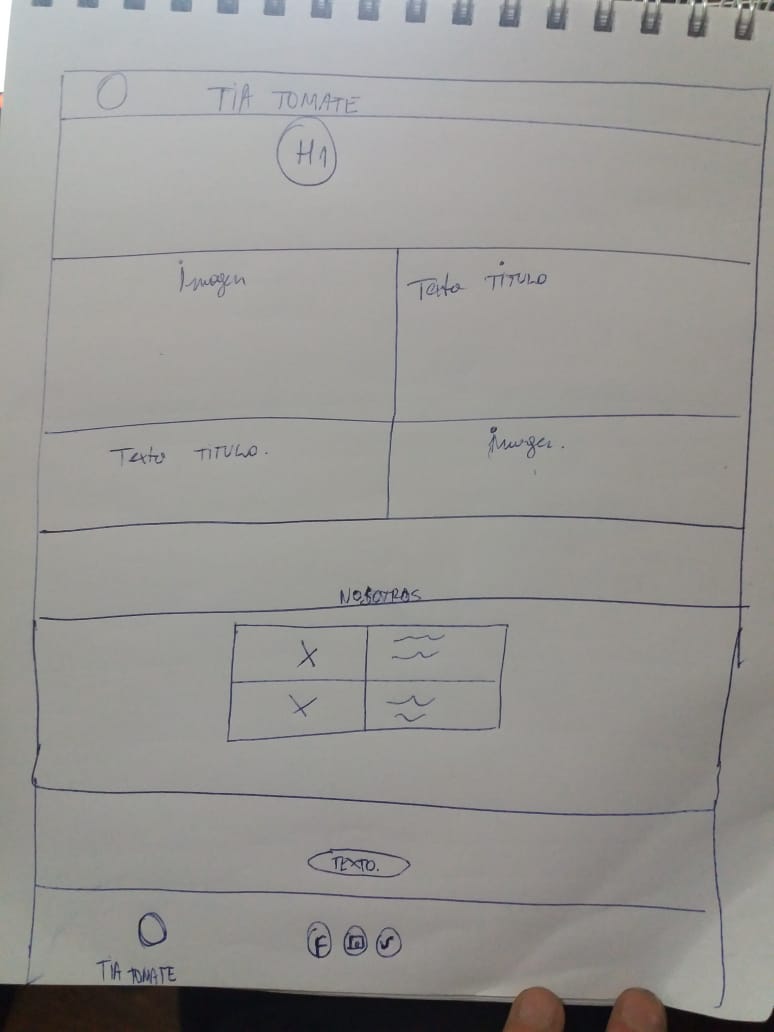 TIA TOMATE
H1
Imagen
Texto TITULO
Texto TITULO.
Imagen.
NOSOTRAS
X
X
TEXTO.
F
TIA TOMATE